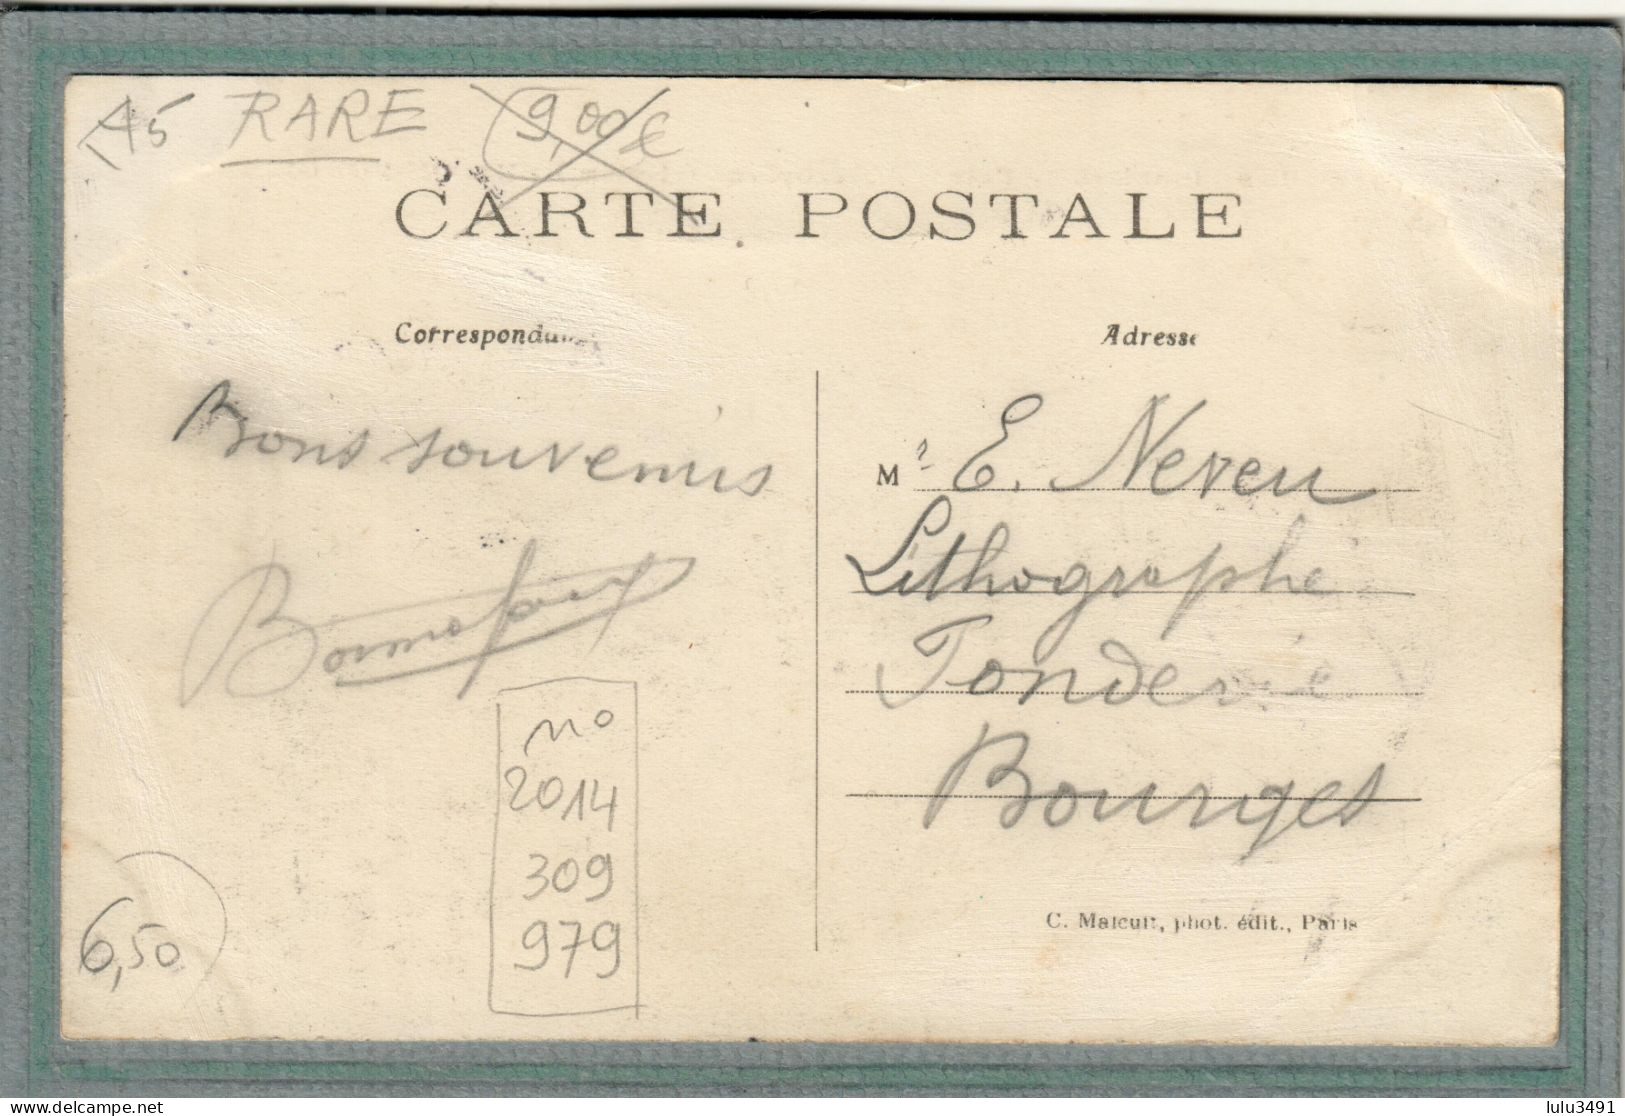 RARE 9,00€
CARTE POSTALE
Correspondan
Adresse
Bons souvenirs
Mr E. Neveu
Lithographe
Fonderie
Bourges
no
2014
309
979
6,50
C. Malcuit, phot. édit., Paris
lulu3491